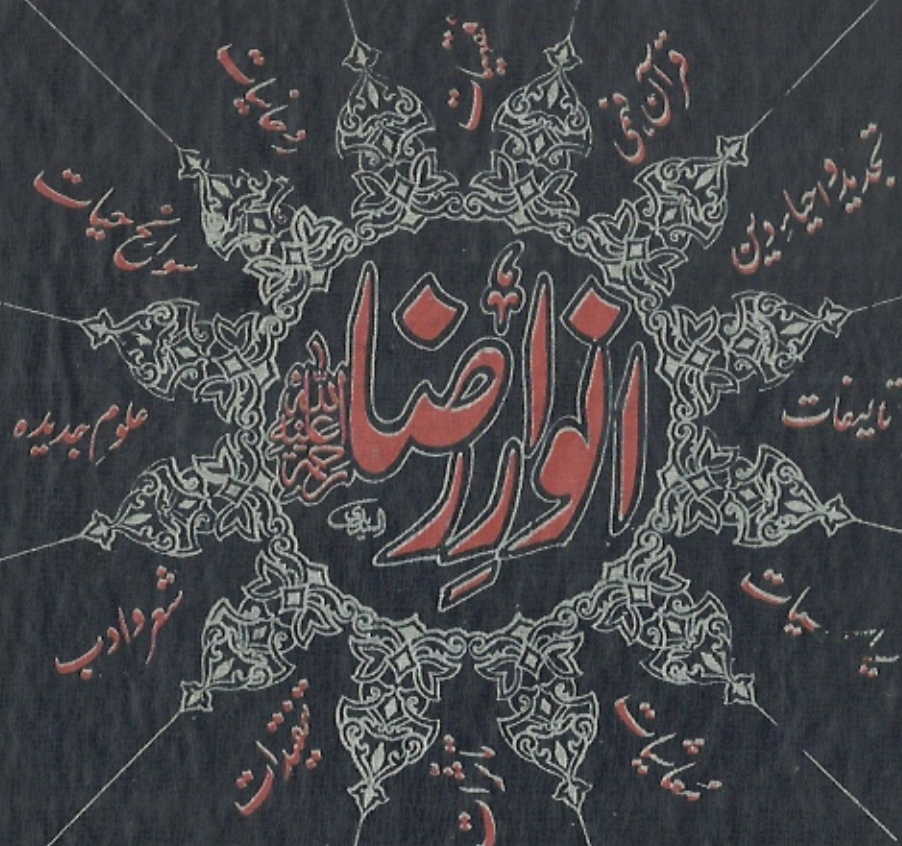 انوارِ رضا
رحمۃ اللہ علیہ
قرآن فہمی
تجدید و احیاءِ دین
تالیفات
تاثرات
تنقیدات
شعر و ادب
علوم جدیدہ
سوانح حیات
روحانیات